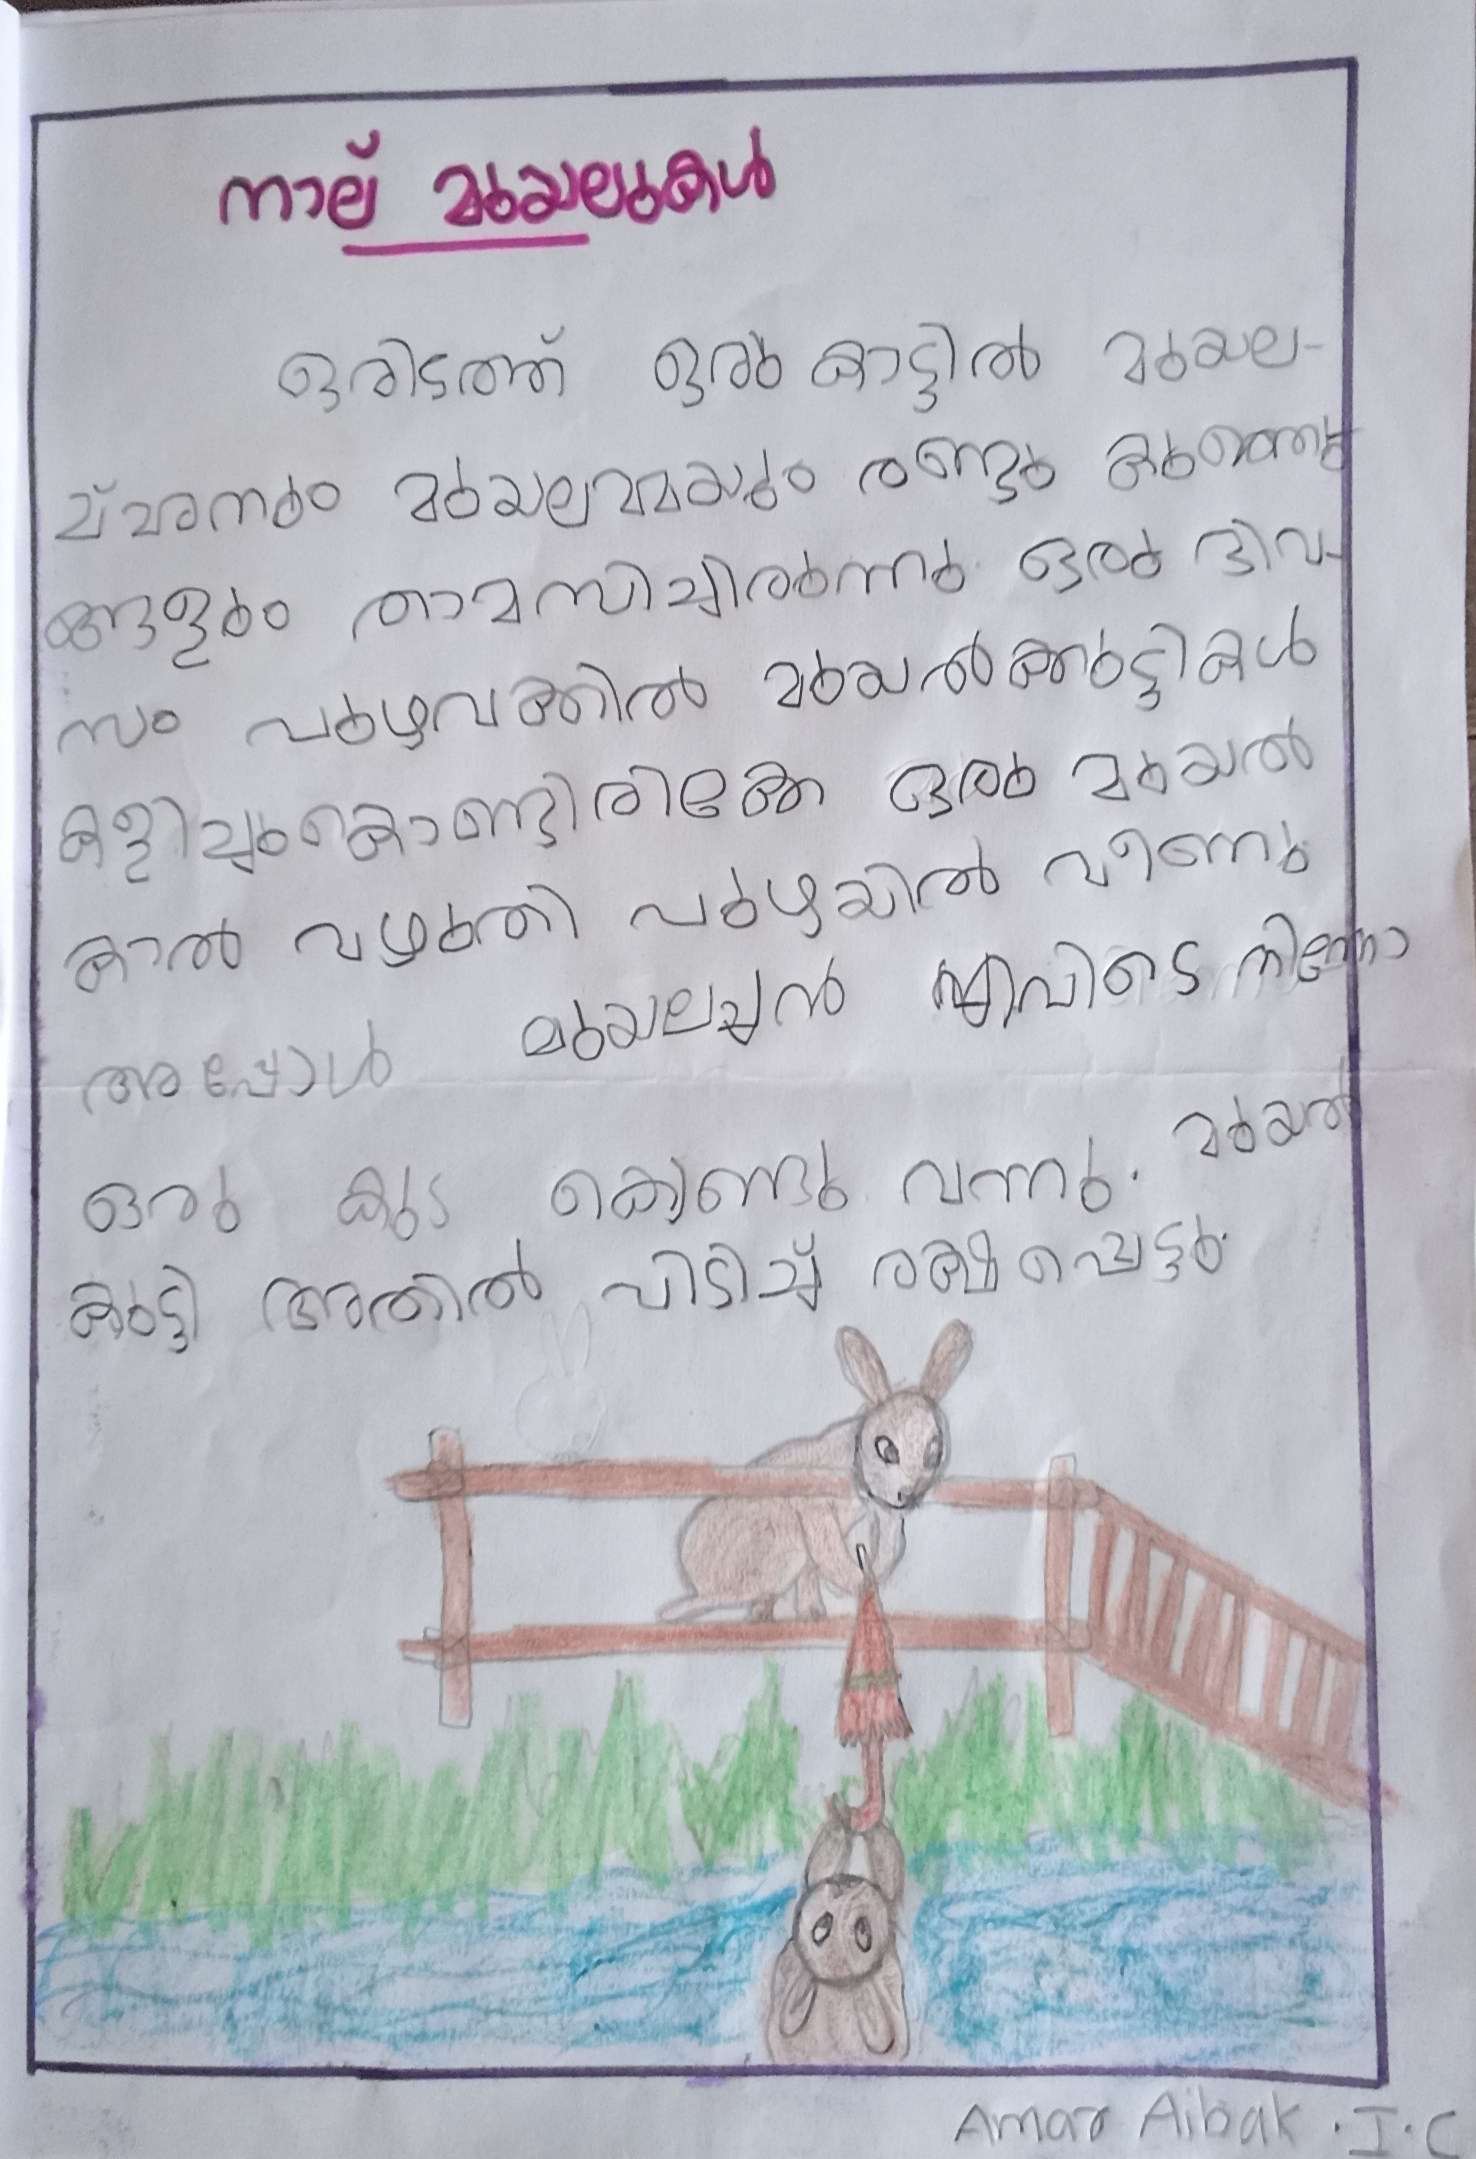 നാല് മുയലുകൾ
ഒരിടത്ത് ഒരു കാട്ടിൽ മുയല-
ച്ചനും മുയലമ്മയും രണ്ടു കുഞ്ഞു
ങ്ങളും താമസിച്ചിരുന്നു. ഒരു ദിവ-
സം പുഴവക്കിൽ മുയൽക്കുട്ടികൾ
കളിച്ചുംകൊണ്ടിരിക്കേ ഒരു മുയൽ
കാൽ വഴുതി പുഴയിൽ വീണു.
അപ്പോൾ മുയലച്ചൻ എവിടെ നിന്നോ
ഒരു കുട കൊണ്ടു വന്നു. മുയൽ
കുട്ടി അതിൽ പിടിച്ച് രക്ഷപ്പെട്ടു.
Amar Aibak . I . C